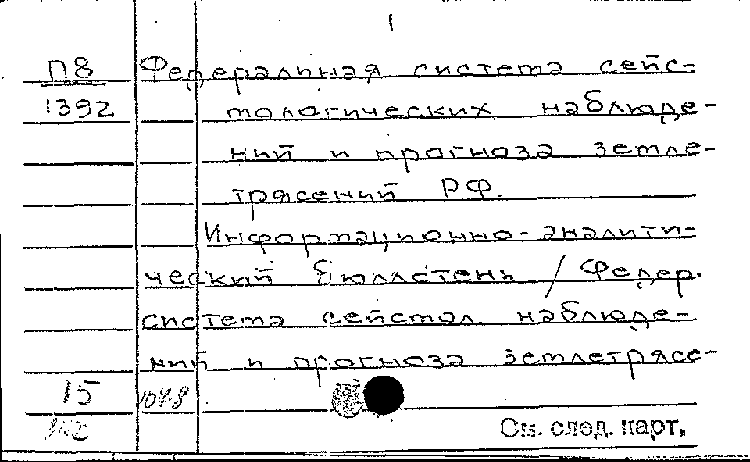 1
П8 Федеральная система сейс-
1392 мологических наблюде-
ний и прогноза земле-
трясений РФ.
Информационно-аналити-
ческий бюллетень / Федер.
система сейсмол. наблюде-
ний и прогноза землетрясе-
15
См. след. карт.